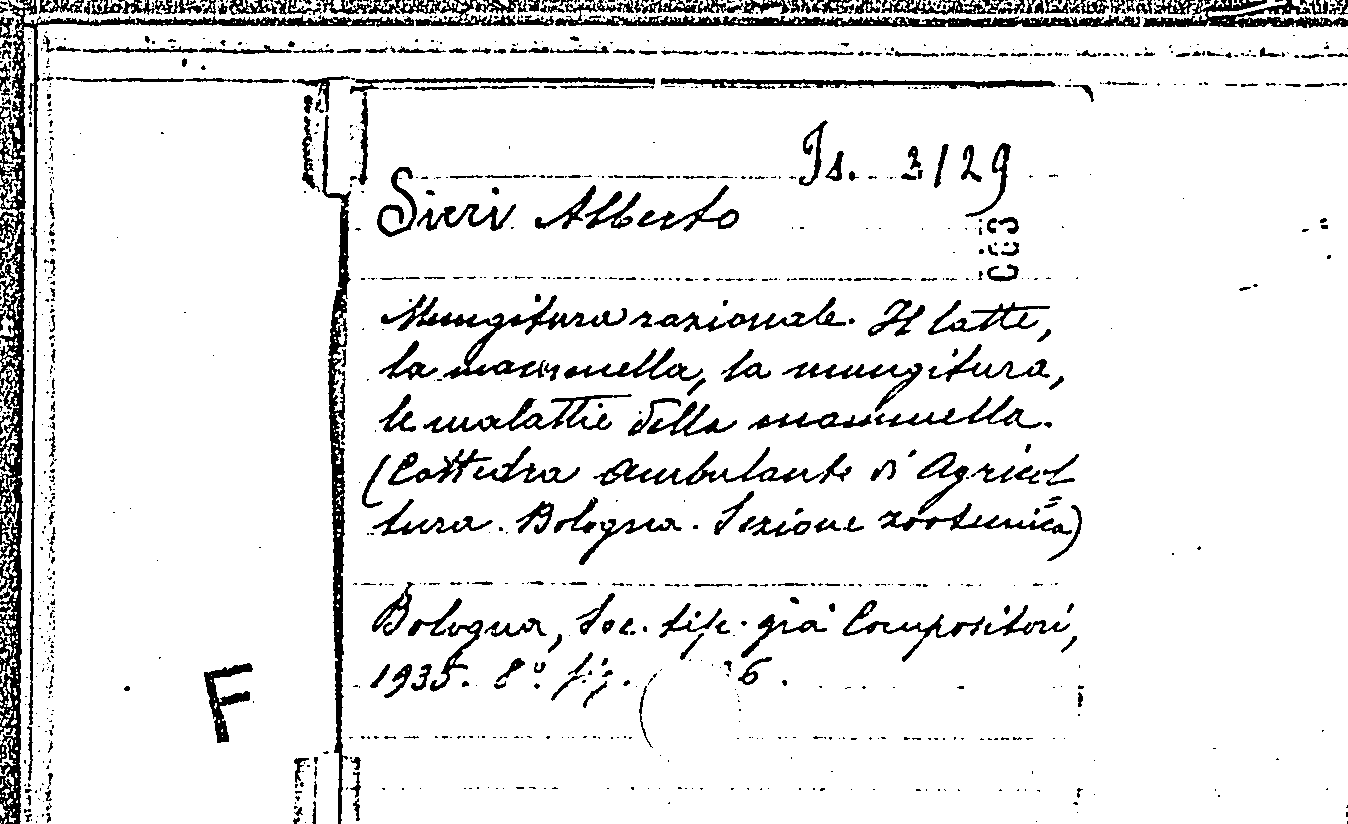 Is. 3/29
Sirri Alberto
003
Mungitura razionale. Il latte,
la mammella, la mungitura,
le malattie della mammella.
(Cattedra ambulante d'Agricol=
tura. Bologna. Sezione zootecnica)
Bologna, Soc. tip. già Compositori,
1935. 8° fig. 6.
F